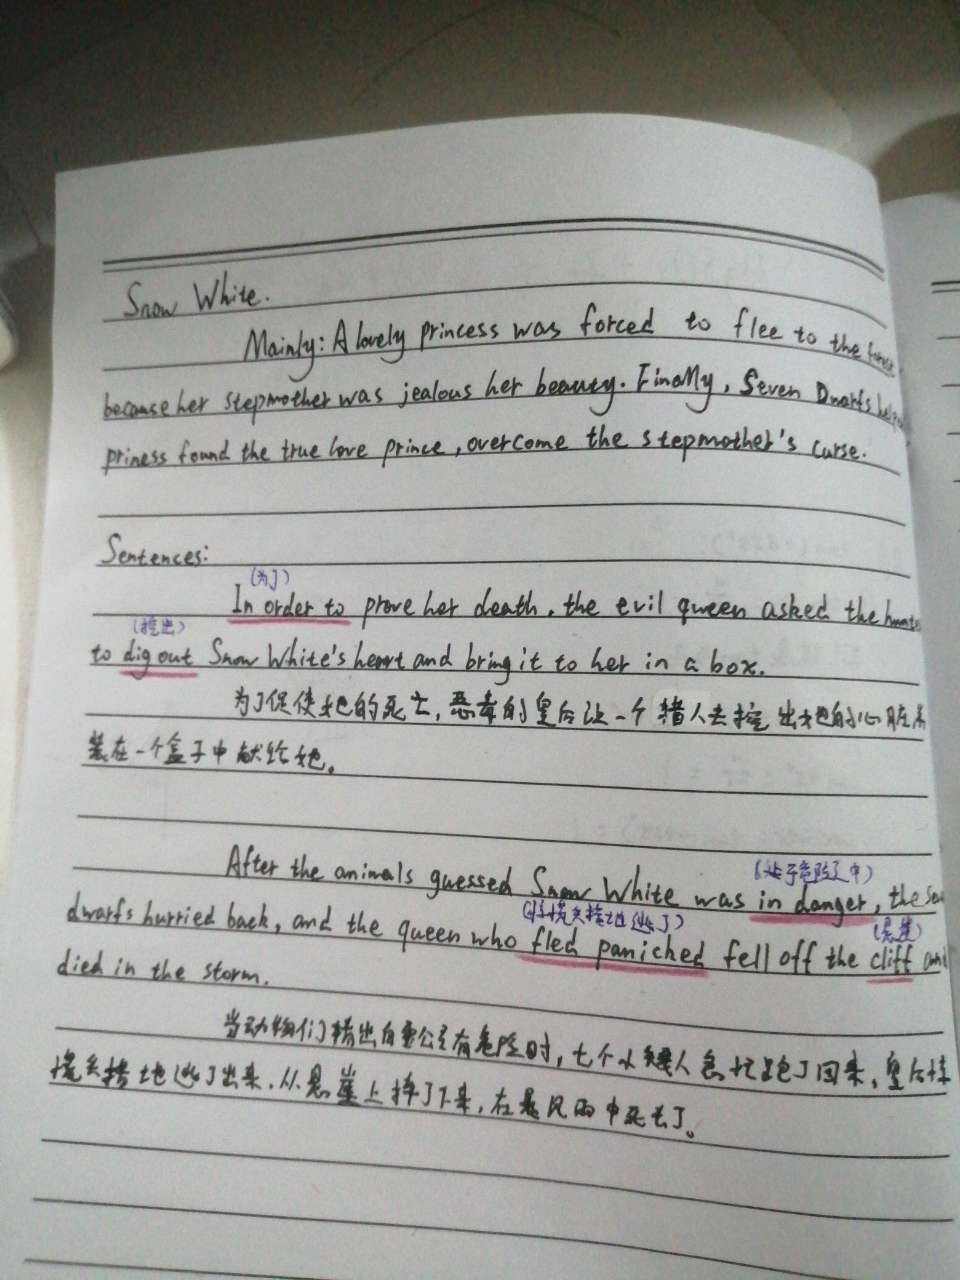 Snow White.
Mainly: A lovely princess was forced to flee to the
because her stepmother was jealous her beauty. Finally, Seven Dwarfs
priness found the true love prince, overcome the stepmother's curse.
Sentences:
(为了)
In order to prove her death, the evil queen asked the
(挖出)
to dig out Snow White's heart and bring it to her in a box.
为了促使她的死亡,恶毒的皇后让一个猎人去挖出她的心脏
装在一个盒子中献给她。
(处于危险之中)
After the animals guessed Snow White was in danger, the
(惊慌失措地逃了)
(悬崖)
dwarfs hurried back, and the queen who fled paniched fell off the cliff and
died in the storm.
当动物们猜出白雪公主有危险时,七个小矮人急忙跑了回来,皇后惊
慌失措地逃了出来,从悬崖上掉了下来,在暴风雨中死去了。